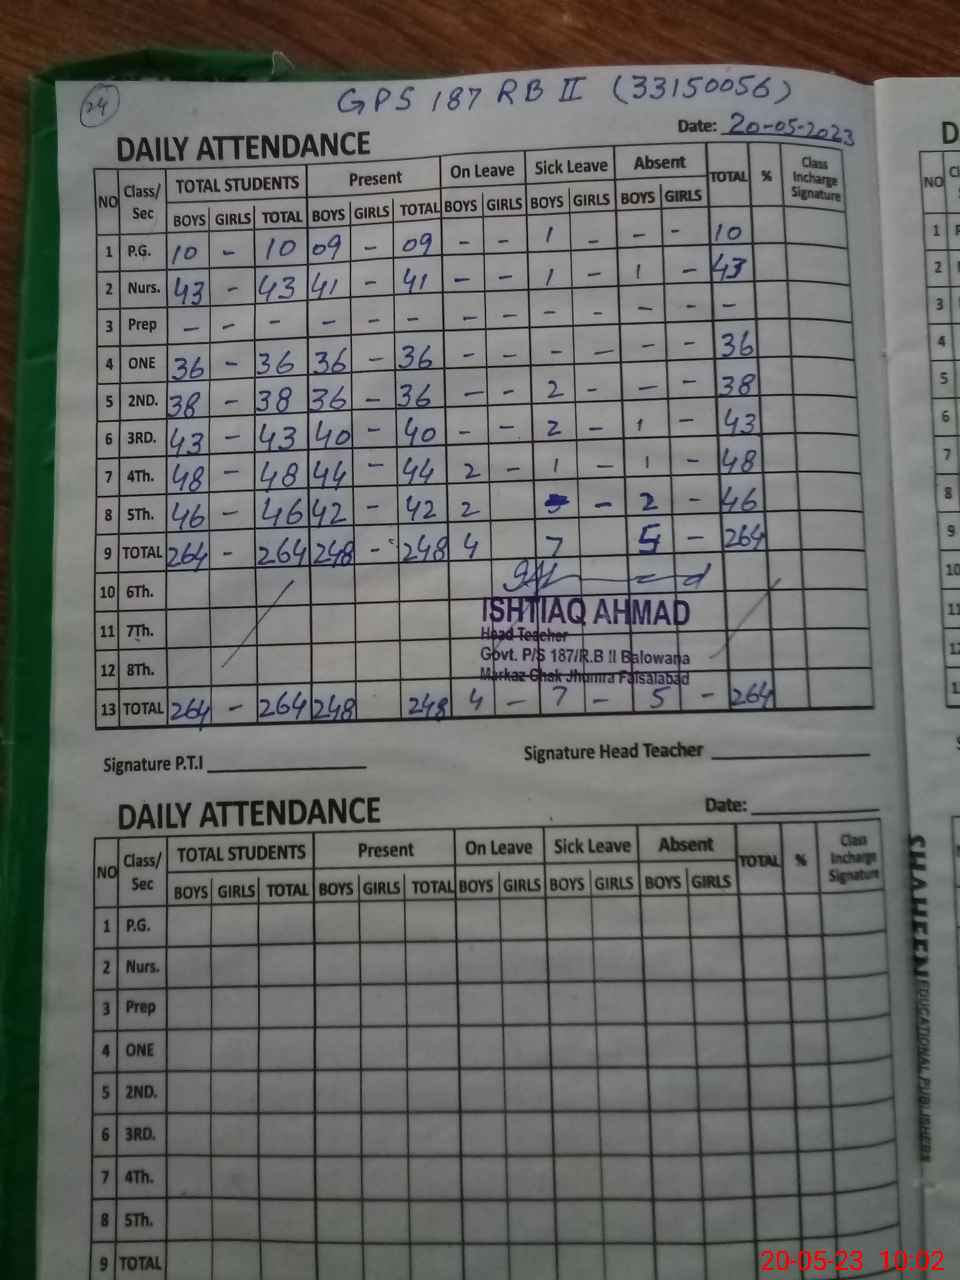 24
GPS 187 RB II (33150056)
DAILY ATTENDANCE Date: 20-05-2023
NO Class/ Sec TOTAL STUDENTS Present On Leave Sick Leave Absent TOTAL % Class Incharge Signature
BOYS GIRLS TOTAL BOYS GIRLS TOTAL BOYS GIRLS BOYS GIRLS BOYS GIRLS
1 P.G. 10 - 10 09 - 09 - - 1 - - - 10
2 Nurs. 43 - 43 41 - 41 - - 1 - 1 - 43
3 Prep - - - - - - - - - - - - -
4 ONE 36 - 36 36 - 36 - - - - - - 36
5 2ND. 38 - 38 36 - 36 - - 2 - - - 38
6 3RD. 43 - 43 40 - 40 - - 2 - 1 - 43
7 4Th. 48 - 48 44 - 44 2 - 1 - 1 - 48
8 5Th. 46 - 46 42 - 42 2 - 2 - 46
9 TOTAL 264 - 264 248 - 248 4 7 5 - 264
10 6Th.
11 7Th.
12 8Th.
ISHTIAQ AHMAD
Head Teacher
Govt. P/S 187/R.B II Balowana
Markaz Chak Jhumra Faisalabad
13 TOTAL 264 - 264 248 248 4 - 7 - 5 - 264
Signature P.T.I Signature Head Teacher
DAILY ATTENDANCE Date:
NO Class/ Sec TOTAL STUDENTS Present On Leave Sick Leave Absent TOTAL % Class Incharge Signature
BOYS GIRLS TOTAL BOYS GIRLS TOTAL BOYS GIRLS BOYS GIRLS BOYS GIRLS
1 P.G.
2 Nurs.
3 Prep
4 ONE
5 2ND.
6 3RD.
7 4Th.
8 5Th.
9 TOTAL
D
NO
1
2
3
4
5
6
7
8
9
10
SHAHEEN EDUCATIONAL PUBLISHERS
20-05-23 10:02